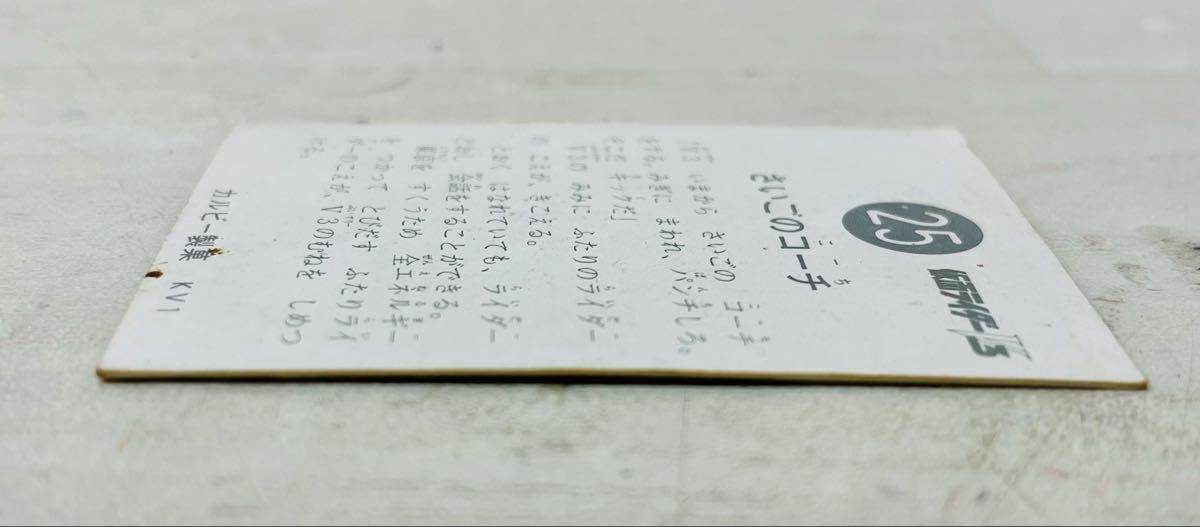 25
仮面ライダーV3
さいごのコーチ
V3 いまから さいごの コーチ
をする。みぎに まわれ、パンチしろ。
そこだ キックだ』
V3の みみに ふたりのライダー
の こえが、きこえる。
とおく はなれていても、ライダー
どおし 会話をすることができる。
すくうため 全エネルギー
を つかって とびだす ふたりライ
ダーのこえが V3のむねを しめつ
ける。
カルビー製菓 KV1